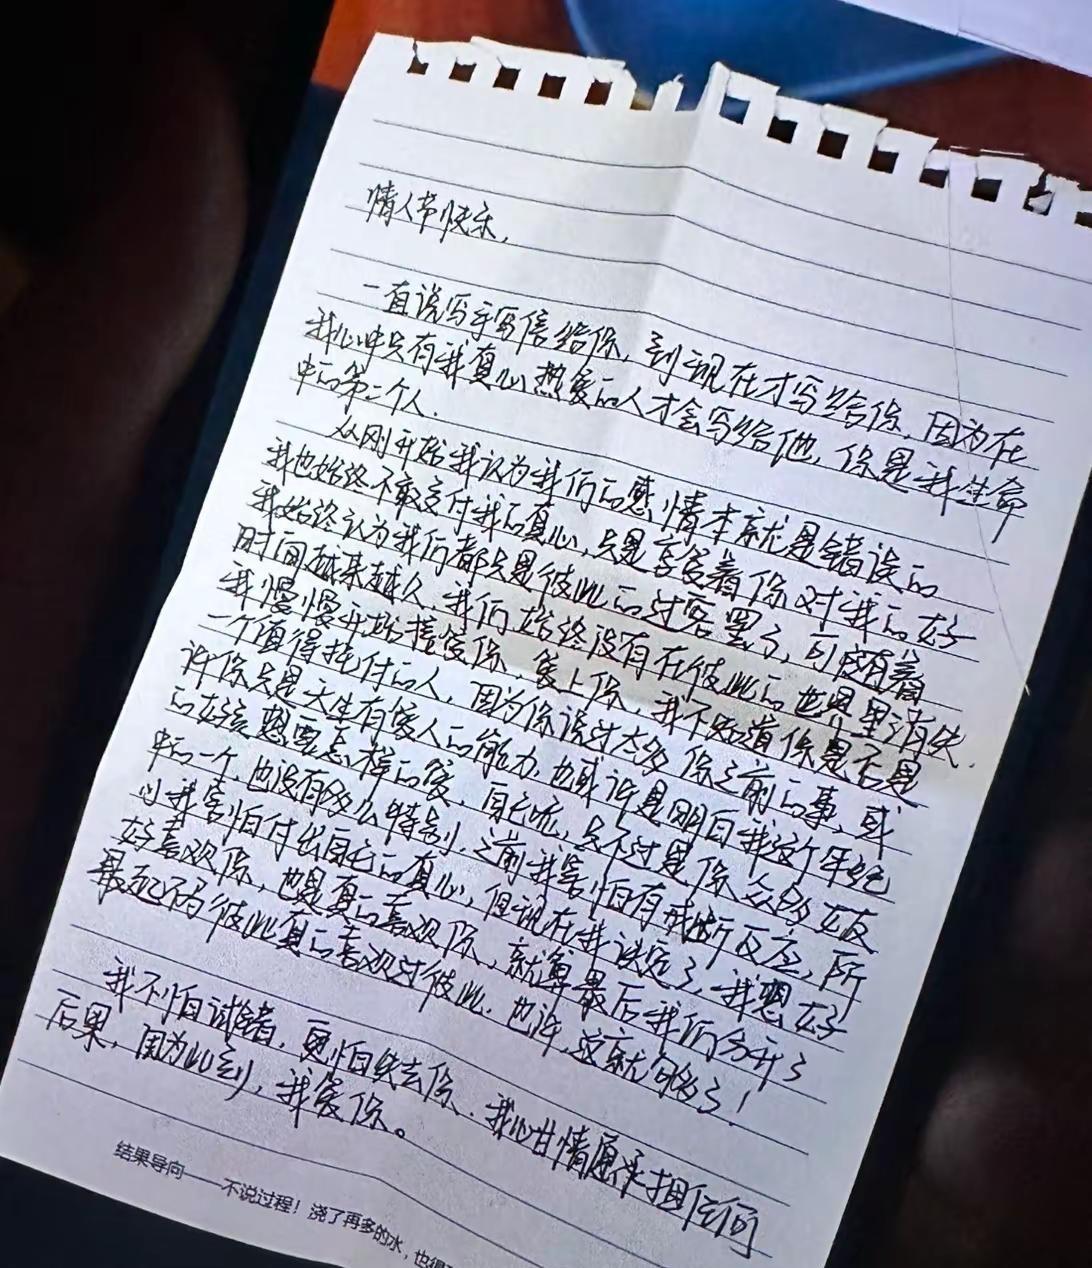 情人节快乐，
一直说写手写信给你，到现在才写给你，因为在
我心中只有我真心热爱的人才会写给他，你是我生命
中的第二个人．
从刚开始我认为我们的感情本就是错误的
我也始终不敢交付我的真心，只是享受着你对我的好
我始终认为我们都只是彼此的过客罢了，可随着
时间越来越久，我们始终没有在彼此的世界里消失．
我慢慢开始接受你，爱上你，我不知道你是不是
一个值得托付的人，因为你说过太多你之前的事，或
许你只是天生有爱人的能力，也或许是明白我这个年纪
的女孩想要怎样的爱，自私点，只不过是你众多女友
中的一个，也没有多么特别，之前我害怕有戒断反应，所
以我害怕付出自己的真心，但现在我决定了，我想好
好喜欢你，也是真的喜欢你，就算最后我们分开了
最起码彼此真的喜欢过彼此，也许，这就够了！
我不怕试错，更怕失去你．我心甘情愿承担任何
后果，因为此刻，我爱你。
结果导向——不说过程！浇了再多的水，也得